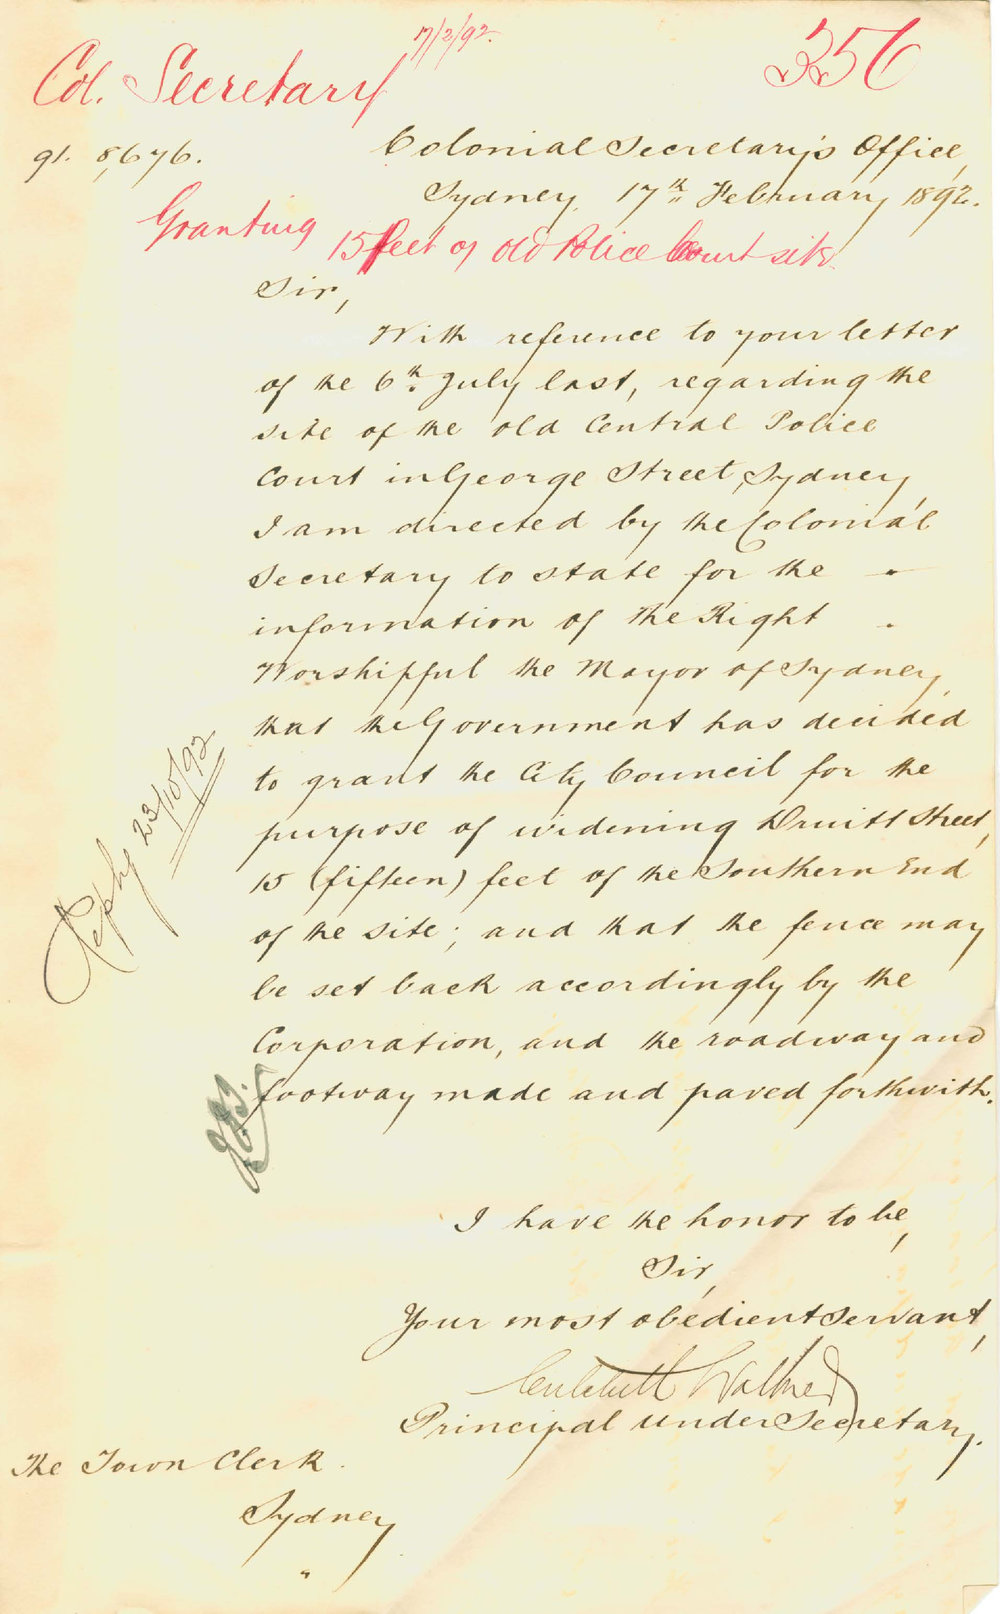 17/2/92.
356
Col. Secretary
91. 8,676.
Colonial Secretary's Office,
Sydney, 17th February 1892.
Granting 15 feet of old Police Court site.
Sir,
With reference to your letter
of the 6th July last, regarding the
site of the old Central Police
Court in George Street, Sydney,
I am directed by the Colonial
Secretary to state for the
information of the Right
Worshipful the Mayor of Sydney,
that the Government has decided
to grant the City Council for the
purpose of widening Druitt Street,
15 (fifteen) feet of the Southern End
of the site; and that the fence may
be set back accordingly by the
Corporation, and the roadway and
footway made and paved forthwith.
Reply 23/10/92
I have the honor to be,
Sir,
Your most obedient servant,
Critchett Walker
Principal under Secretary.
The Town Clerk.
Sydney